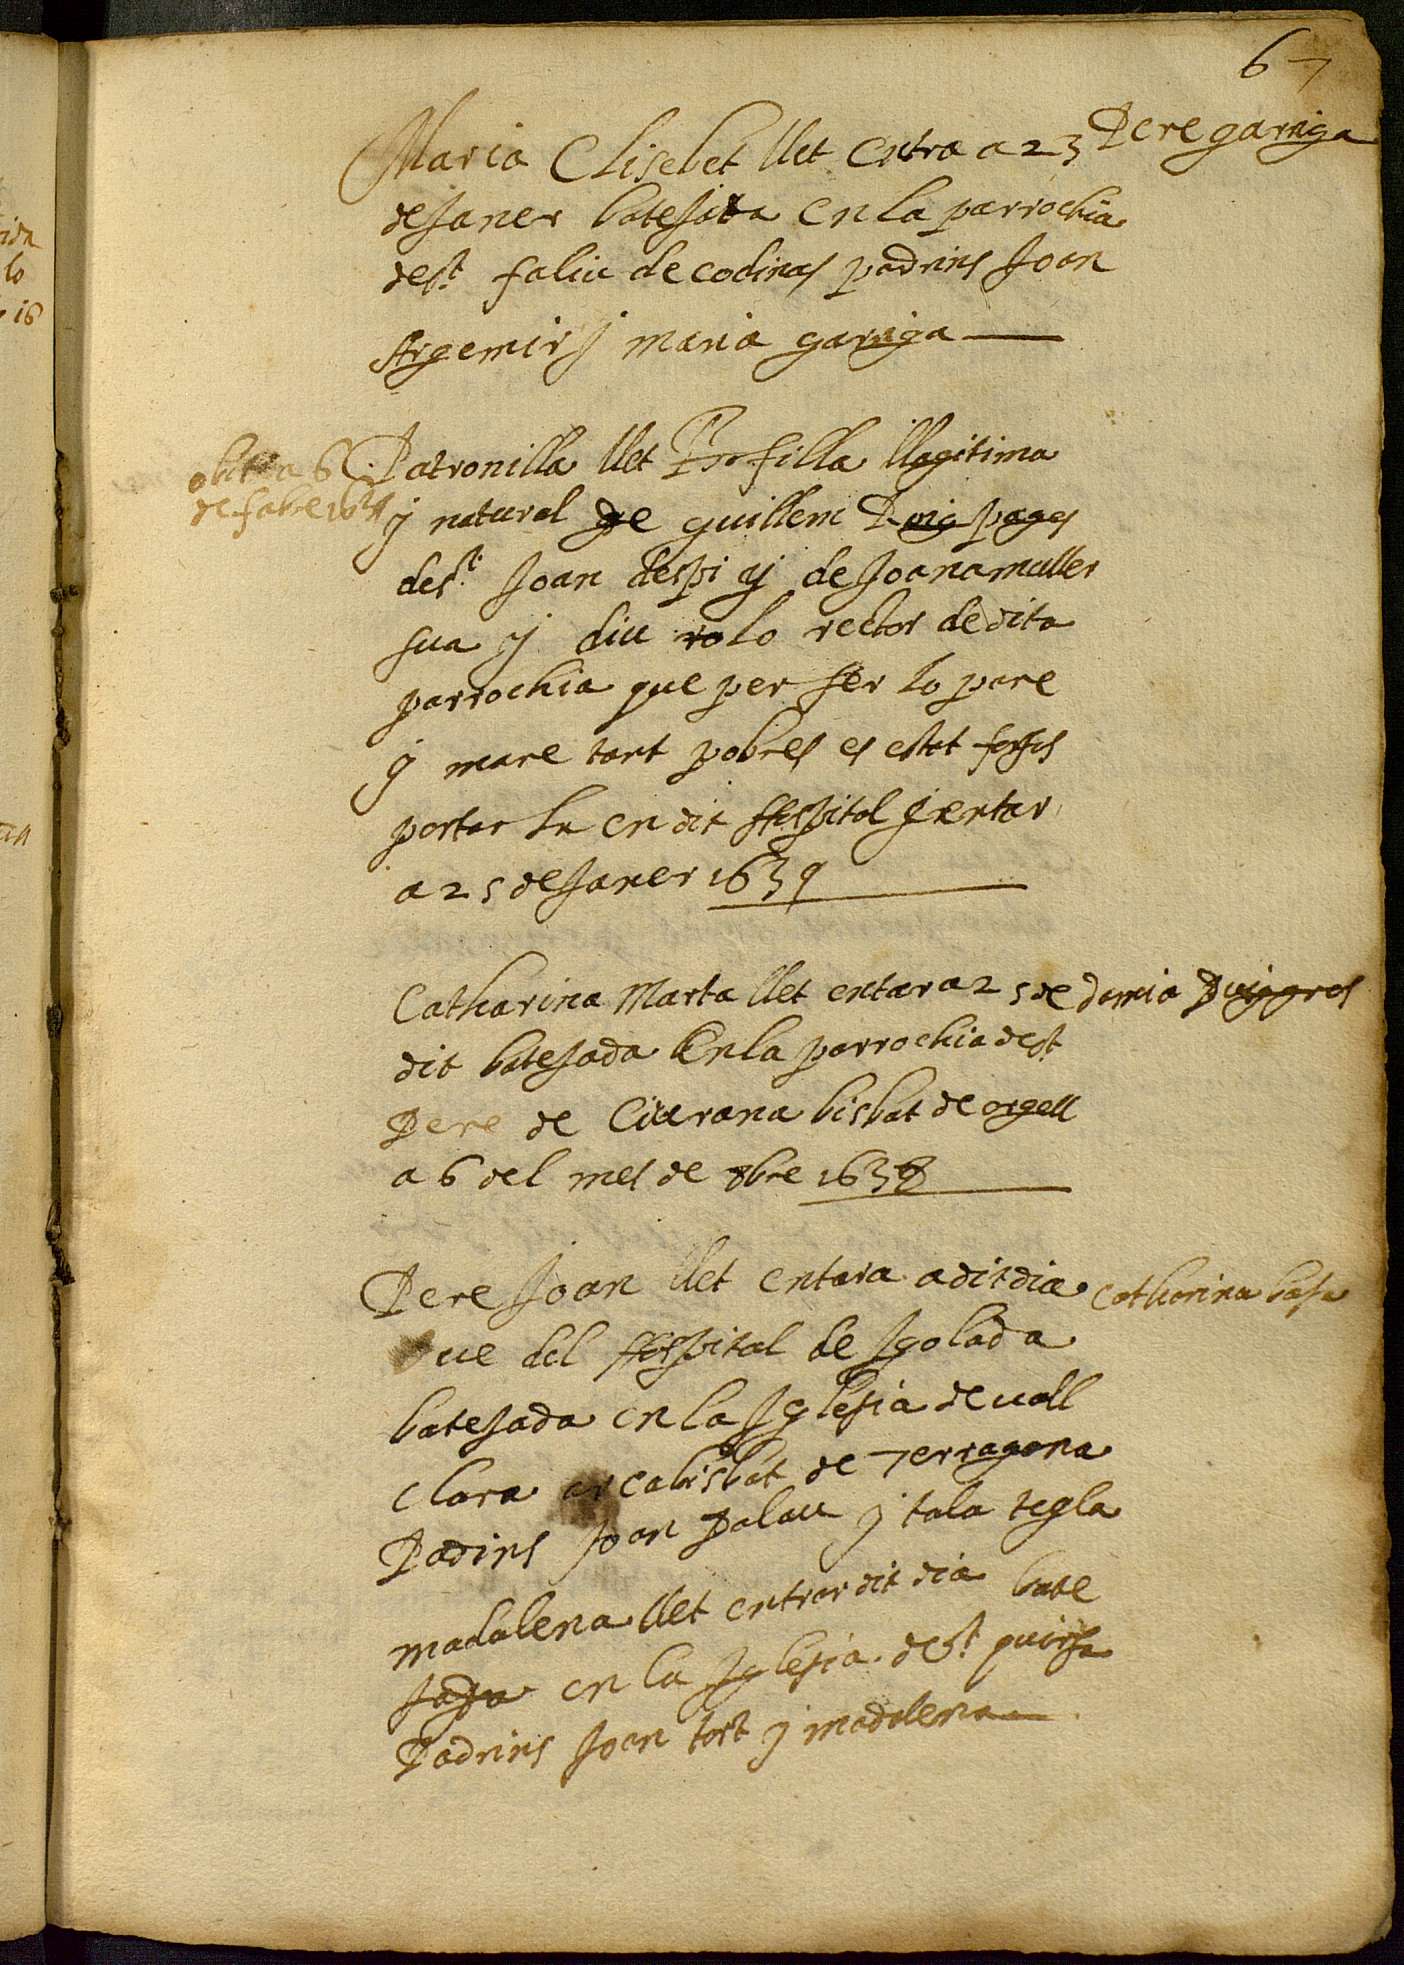 67
Maria Elisebet llet entra a 23
Pere garriga
de Janer batejata en la parrochia
de st. faliu de codinas padrins Joan
Argemir j maria garriga
Patronilla llet filla llagitima
obit a 6
de fabe 1639
y natural de guillem Puig pages
de st. Joan despi y de Joana muller
sua y diu lo rector de dita
parrochia que per ser lo pare
y mare tant pobres es estat forsos
portar la en dit Hospital y entar
a 25 de Janer 1639
Catharina Marta llet entar a 25 de
demia Puiggros
dit batejada En la parrochia de st.
Pere de Ciurana bisbat de orgell
a 6 del mes de 8bre 1638
Pere Joan llet entara a dit dia
Catharina basa
que del Hospital de Jgolada
batejada en la Jglesia de vall
clara arcabisbat de Terragona
Padins Joan Palau y tala tegla
madalena llet entrar dit dia bate
jada en la Jglesia de st. quirsa
Padrins Joan tort y madalena